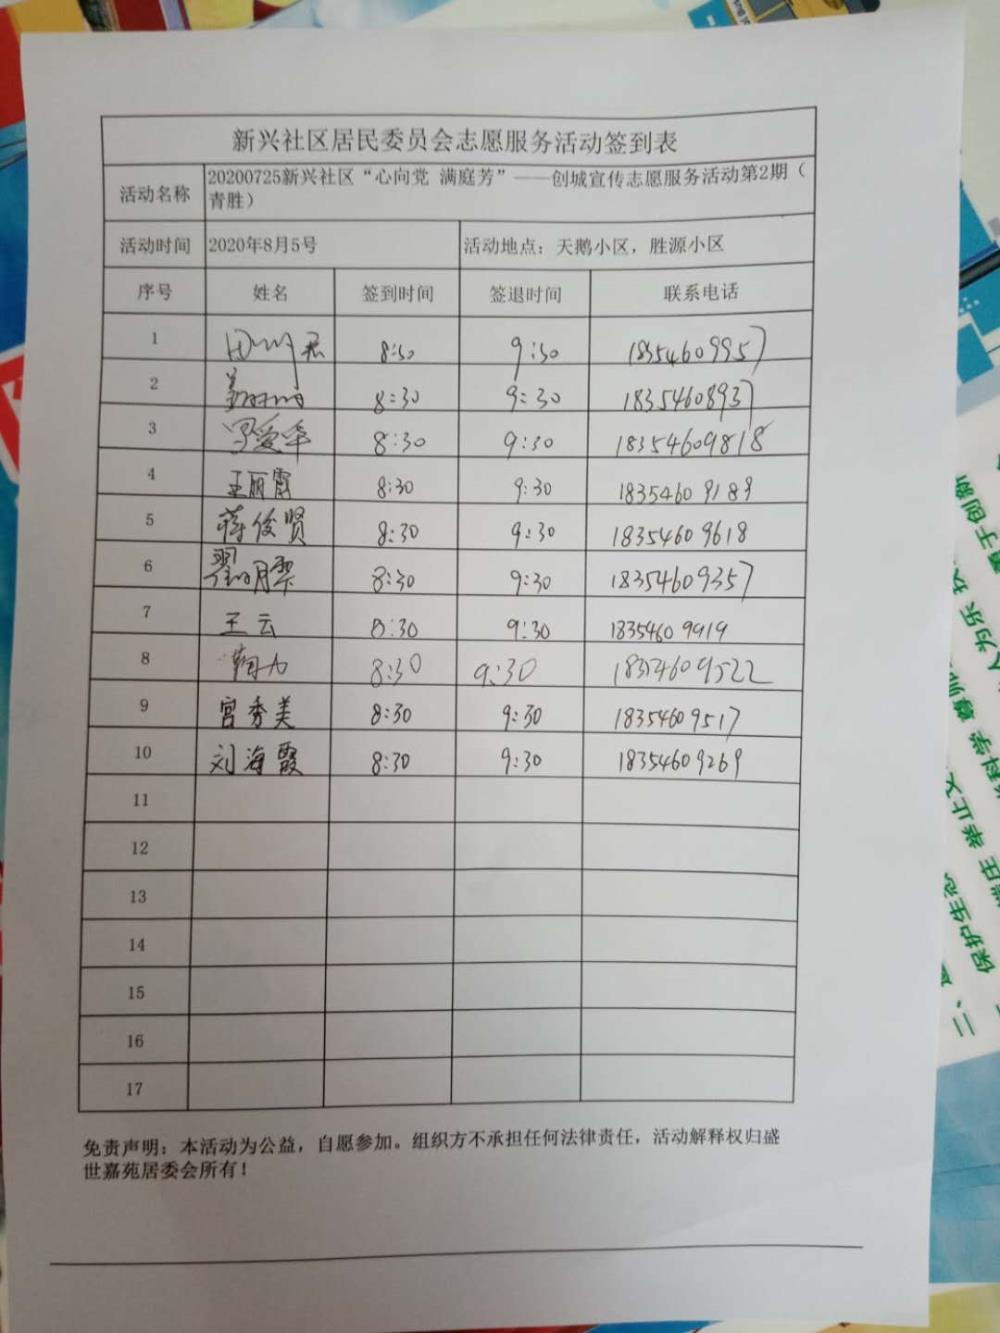 新兴社区居民委员会志愿服务活动签到表
活动名称 20200725新兴社区“心向党 满庭芳”——创城宣传志愿服务活动第2期（
青胜）
活动时间 2020年8月5号 活动地点：天鹅小区，胜源小区
序号 姓名 签到时间 签退时间 联系电话
1 8:30 9:30 18354609957
2 8:30 9:30 18354608937
3 爱华 8:30 9:30 18354609818
4 王丽霞 8:30 9:30 18354609189
5 蒋俊贤 8:30 9:30 18354609618
6 8:30 9:30 18354609357
7 王云 8:30 9:30 18354609919
8 8:30 9:30 18354609522
9 宫秀美 8:30 9:30 18354609517
10 刘海霞 8:30 9:30 18354609269
11
12
13
14
15
16
17
免责声明：本活动为公益，自愿参加。组织方不承担任何法律责任，活动解释权归盛
世嘉苑居委会所有！
保护生态